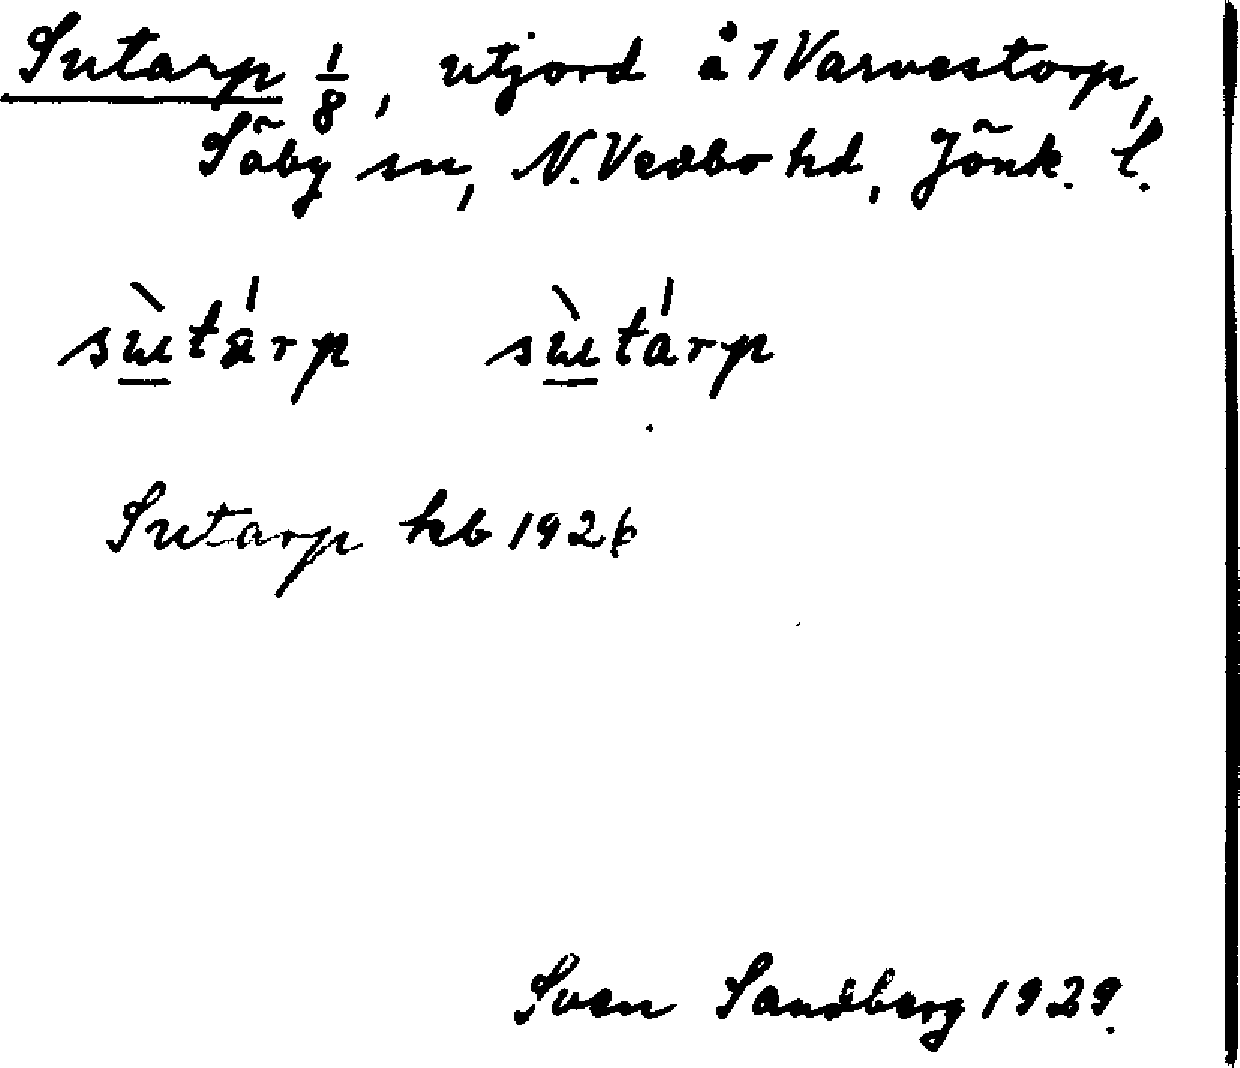 Sutarp 1/8, utjord å 1 Varvestorp,
Säby sn, N. Vedbo hd, Jönk. l.
sùtárp sùtárp
Sutarp hb 1926
Sven Sandberg 1929.